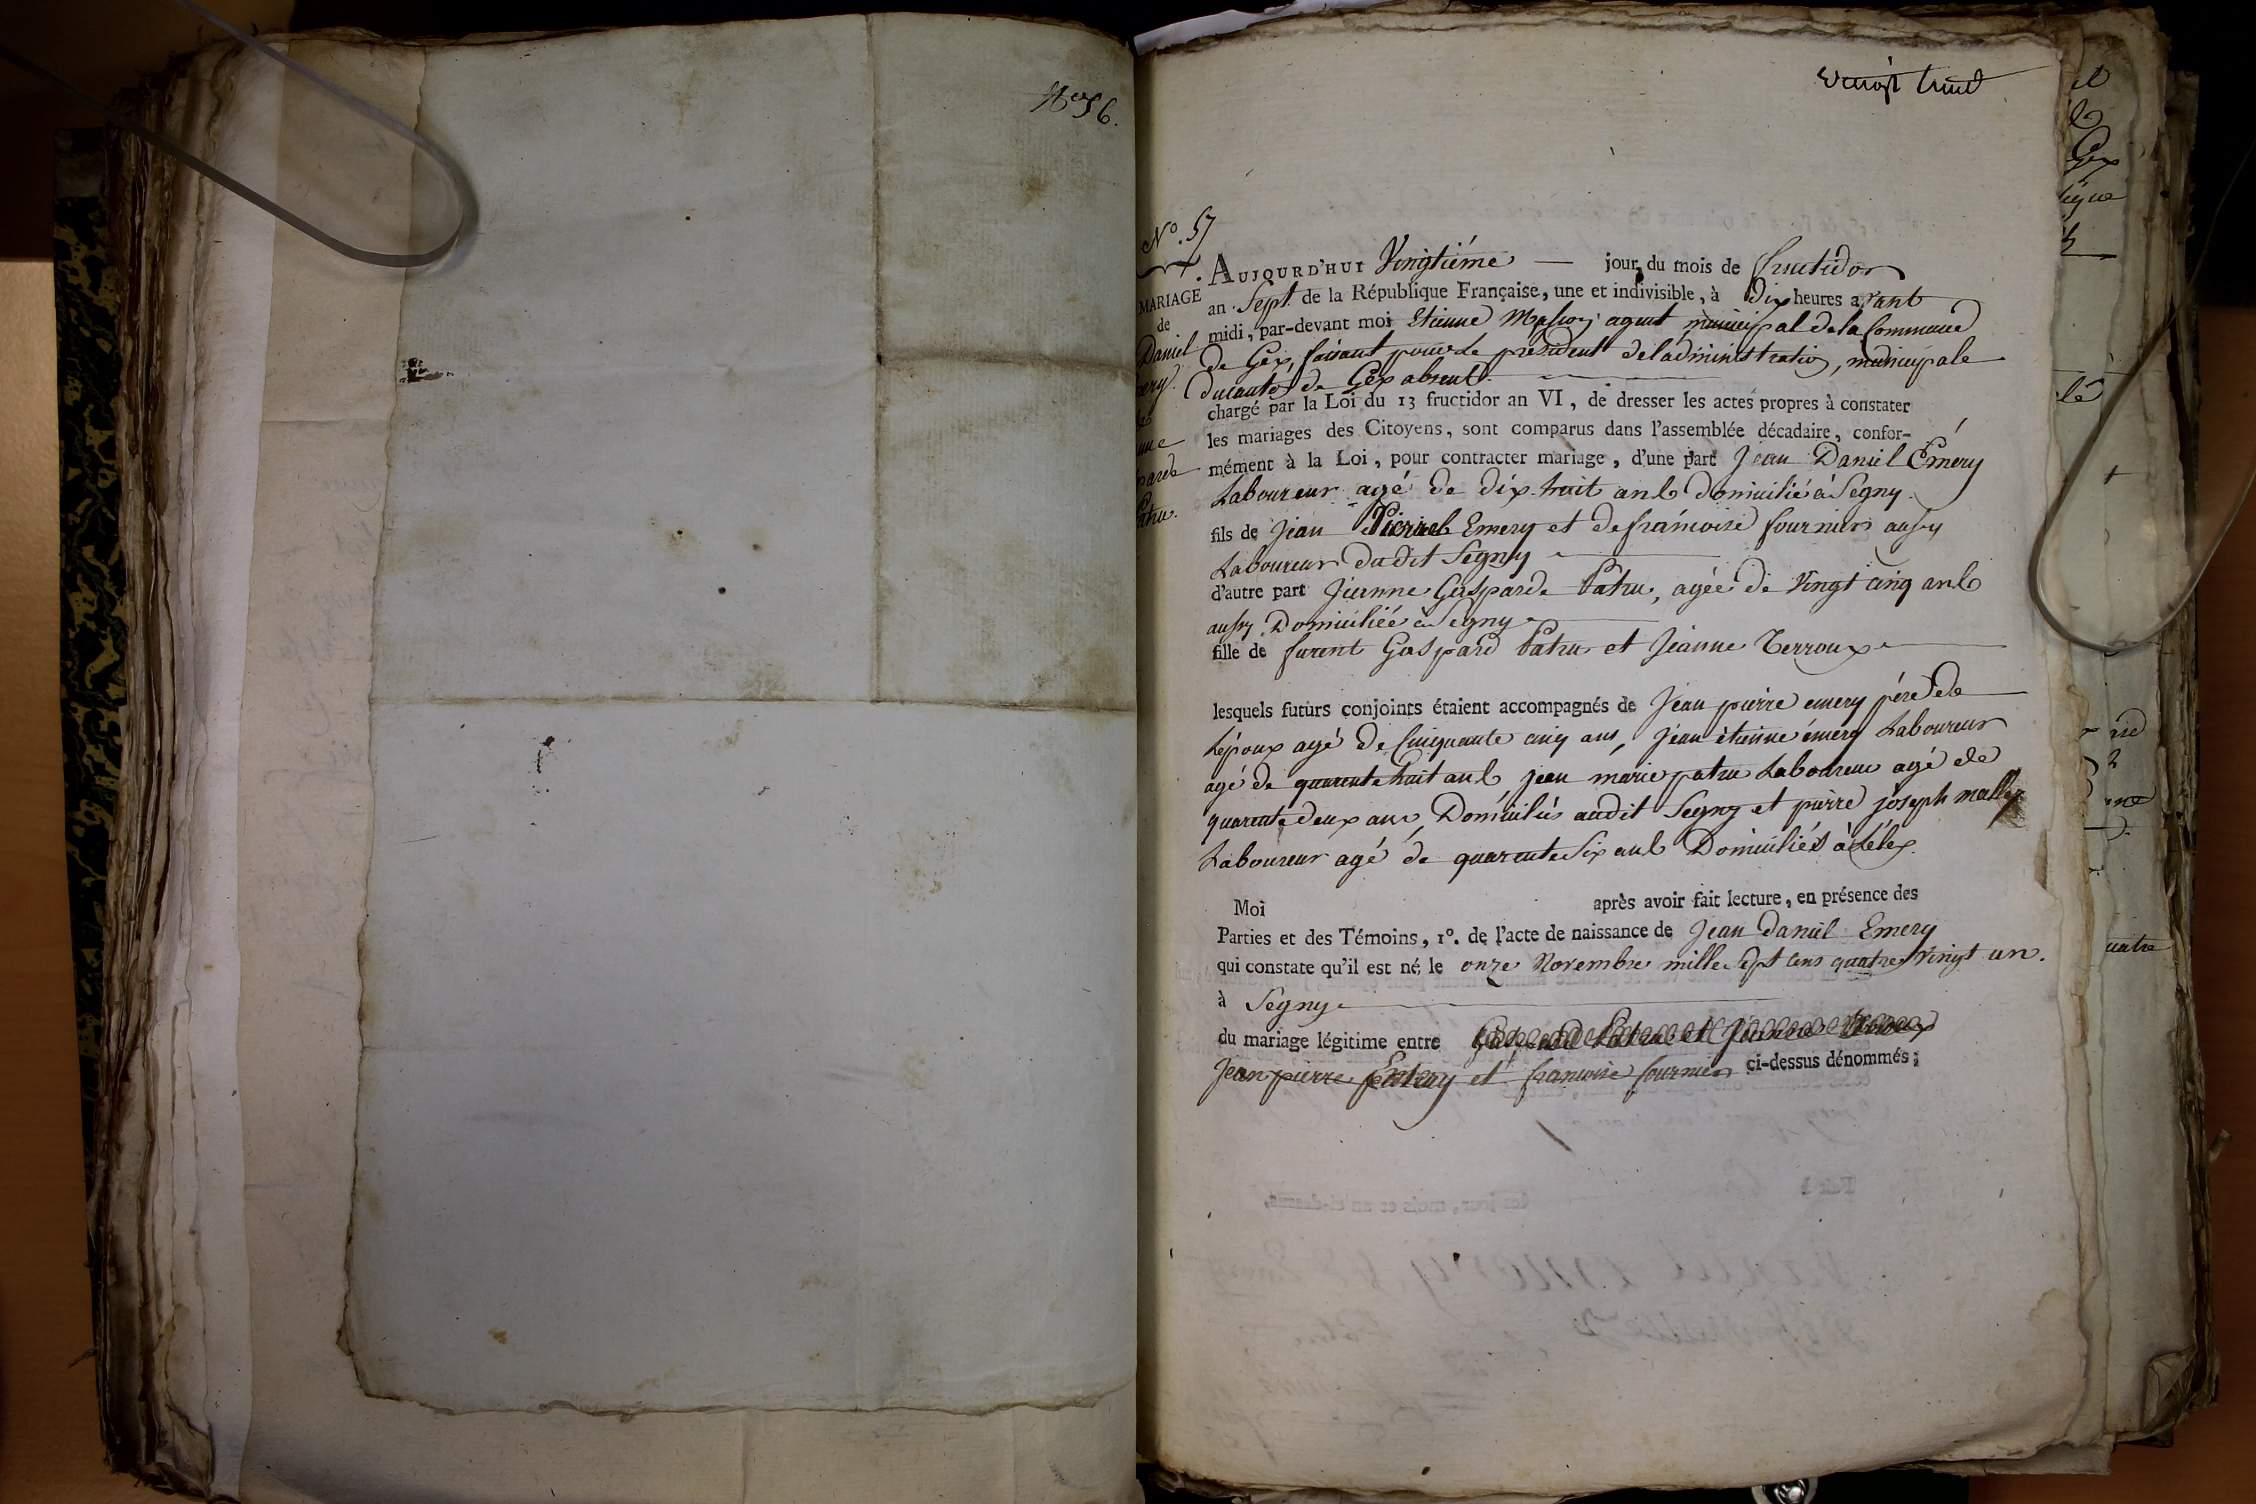 56.
N.° 57
MARIAGE
de
Daniel
Patru.
AUJOURD'HUI Vingtiéme — jour du mois de fructidor
an Sept de la République Française, une et indivisible, à dix heures avant
midi, par-devant moi Etienne agent municipal de la Commune
de Gex, faisant pour le président de l'administration, municipale
du canton de Gex absent.
chargé par la Loi du 13 fructidor an VI, de dresser les actes propres à constater
les mariages des Citoyens, sont comparus dans l'assemblée décadaire, confor-
mément à la Loi, pour contracter mariage, d'une part Jean Daniel Emery
Laboureur agé de dix-huit ans Domicilié à Segny.
fils de Jean Pierre Emery et de françoise fournier aussy
Laboureur dudit Segny
d'autre part Jeanne Gasparde Patru, agée de Vingt cinq ans
aussy Domiciliée à Segny
fille de furent Gaspard Patru et Jeanne Terroux
lesquels futurs conjoints étaient accompagnés de Jean pierre emery père de
Lépoux agé de Cinquante cinq ans, Jean étienne émery Laboureur
agé de quarente huit ans jean marie patru Laboureur agé de
quarente deux ans, Domiciliés audit Segny et pierre joseph
Laboureur agé de quarente Six ans Domiciliés à Lélex.
Moi après avoir fait lecture, en présence des
Parties et des Témoins, 1°. de l'acte de naissance de Jean Daniel Emery
qui constate qu'il est né le onze Novembre mille Sept Cens quatre Vingt un.
à Segny
du mariage légitime entre Gaspard Patru et Jeanne Terroux
Jean pierre Emery et françoise fournier ci-dessus dénommés;